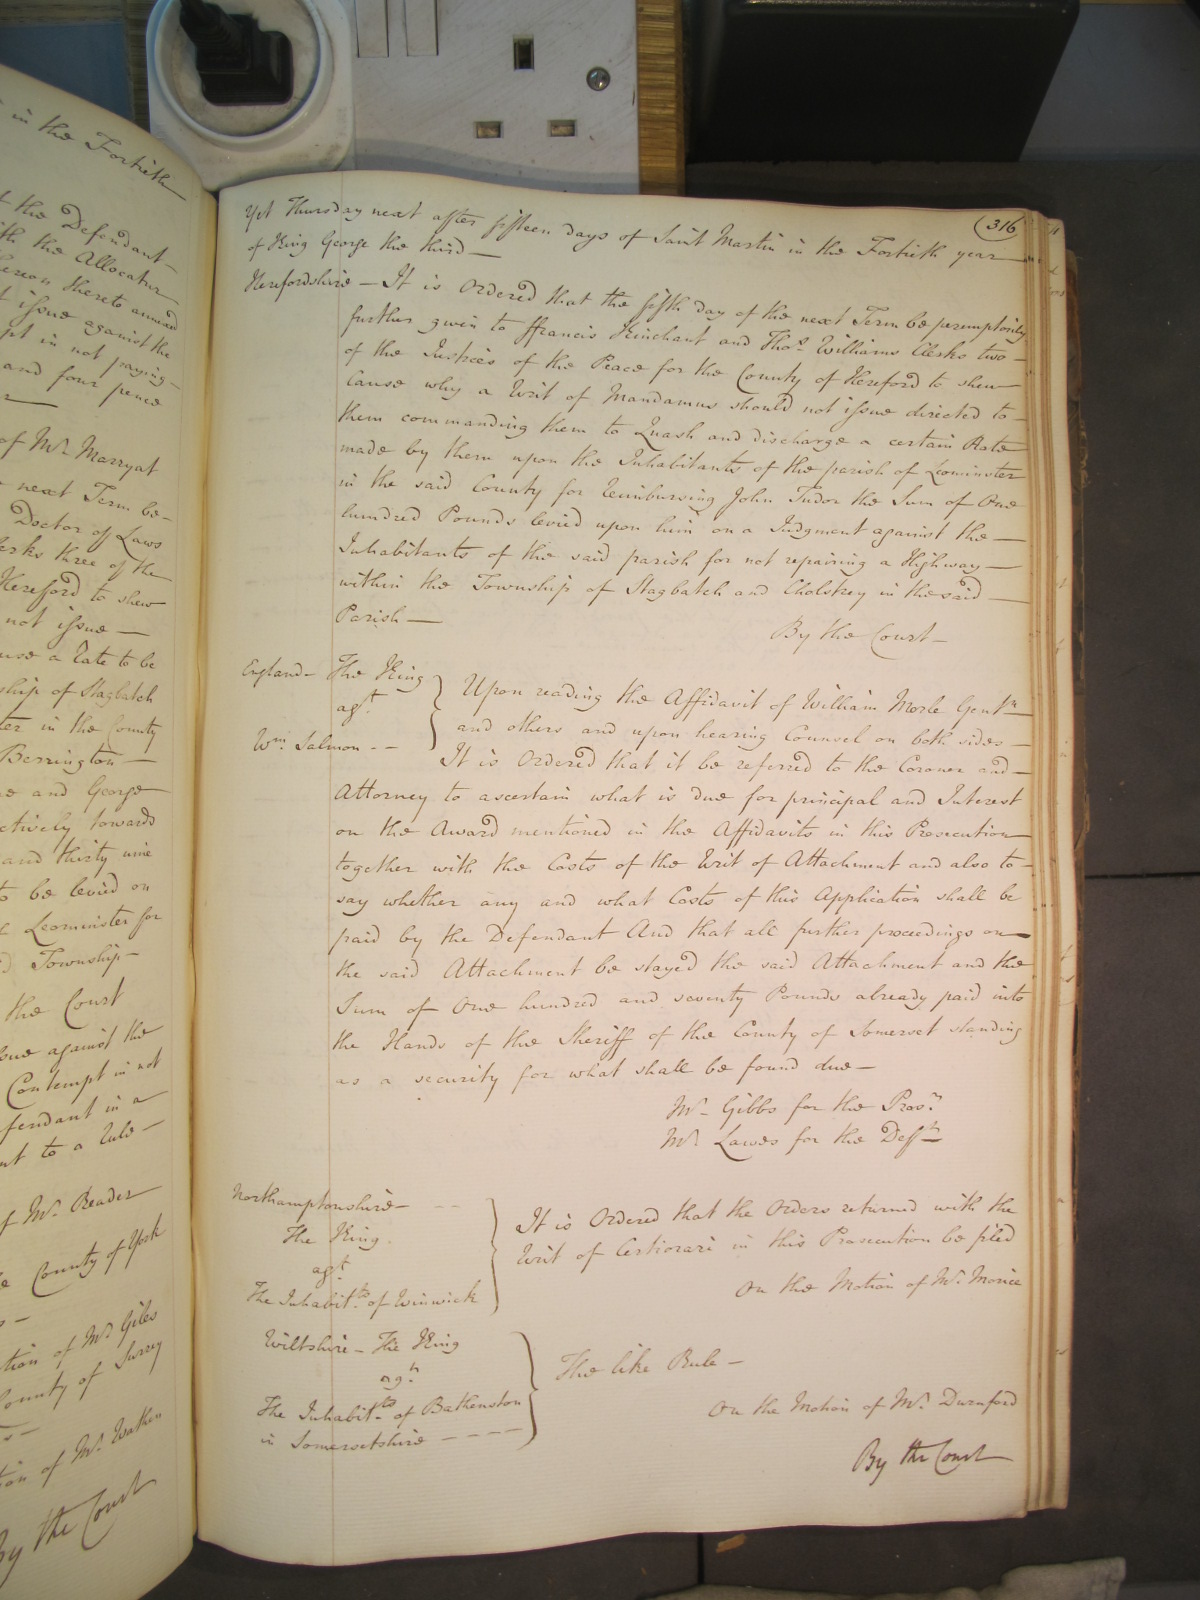 in the Fortieth
t the Defendant
ith the Allocatur
hereon thereto annexed
t issue against the
pt in not paying
and four pence
of Mr. Marryat
next Term be
Doctor of Laws
lerks three of the
Hereford to shew
not issue
use a Rate to be
ship of Stagbatch
ter in the County
Berrington
and George
ctively towards
and thirty nine
to be levied on
Leominster for
Township
the Court
sue against the
Contempt in not
fendant in a
nt to a Rule
of Mr. Reader
County of York
tion of Mr. Giles
County of Surrey
tion of Mr. Wathen
By the Court
316
Yet Thursday next after fifteen days of Saint Martin in the Fortieth year
of King George the third
Herefordshire - It is Ordered that the fifth day of the next Term be peremptorily
further given to Francis Kinchant and Thos. Williams Clerks two
of the Justices of the Peace for the County of Hereford to shew
Cause why a Writ of Mandamus should not issue directed to
them commanding them to Quash and discharge a certain Rate
made by them upon the Inhabitants of the parish of Leominster
in the said County for reimbursing John Tudor the Sum of One
hundred Pounds levied upon him on a Judgment against the
Inhabitants of the said parish for not repairing a Highway
within the Township of Stagbatch and Cholstrey in the said
Parish
By the Court
England - The King
agt.
Wm. Salmon
Upon reading the Affidavit of William Morle Gentn
and others and upon hearing Counsel on both sides
It is Ordered that it be referred to the Coroner and
Attorney to ascertain what is due for principal and Interest
on the Award mentioned in the Affidavits in this Prosecution
together with the Costs of the Writ of Attachment and also to
say whether any and what Costs of this Application shall be
paid by the Defendant And that all further proceedings on
the said Attachment be stayed the said Attachment and the
Sum of One hundred and seventy Pounds already paid into
the Hands of the Sheriff of the County of Somerset standing
as a security for what shall be found due
Mr. Gibbs for the Prosr.
Mr. Lawes for the Defft.
Northamptonshire
The King
agt.
The Inhabitts. of Winwick
It is Ordered that the Orders returned with the
Writ of Certiorari in this Prosecution be filed
On the Motion of Mr. Morice
Wiltshire - The King
agt.
The Inhabitts. of Bathenston
in Somersetshire
The like Rule
On the Motion of Mr. Durnford
By the Court